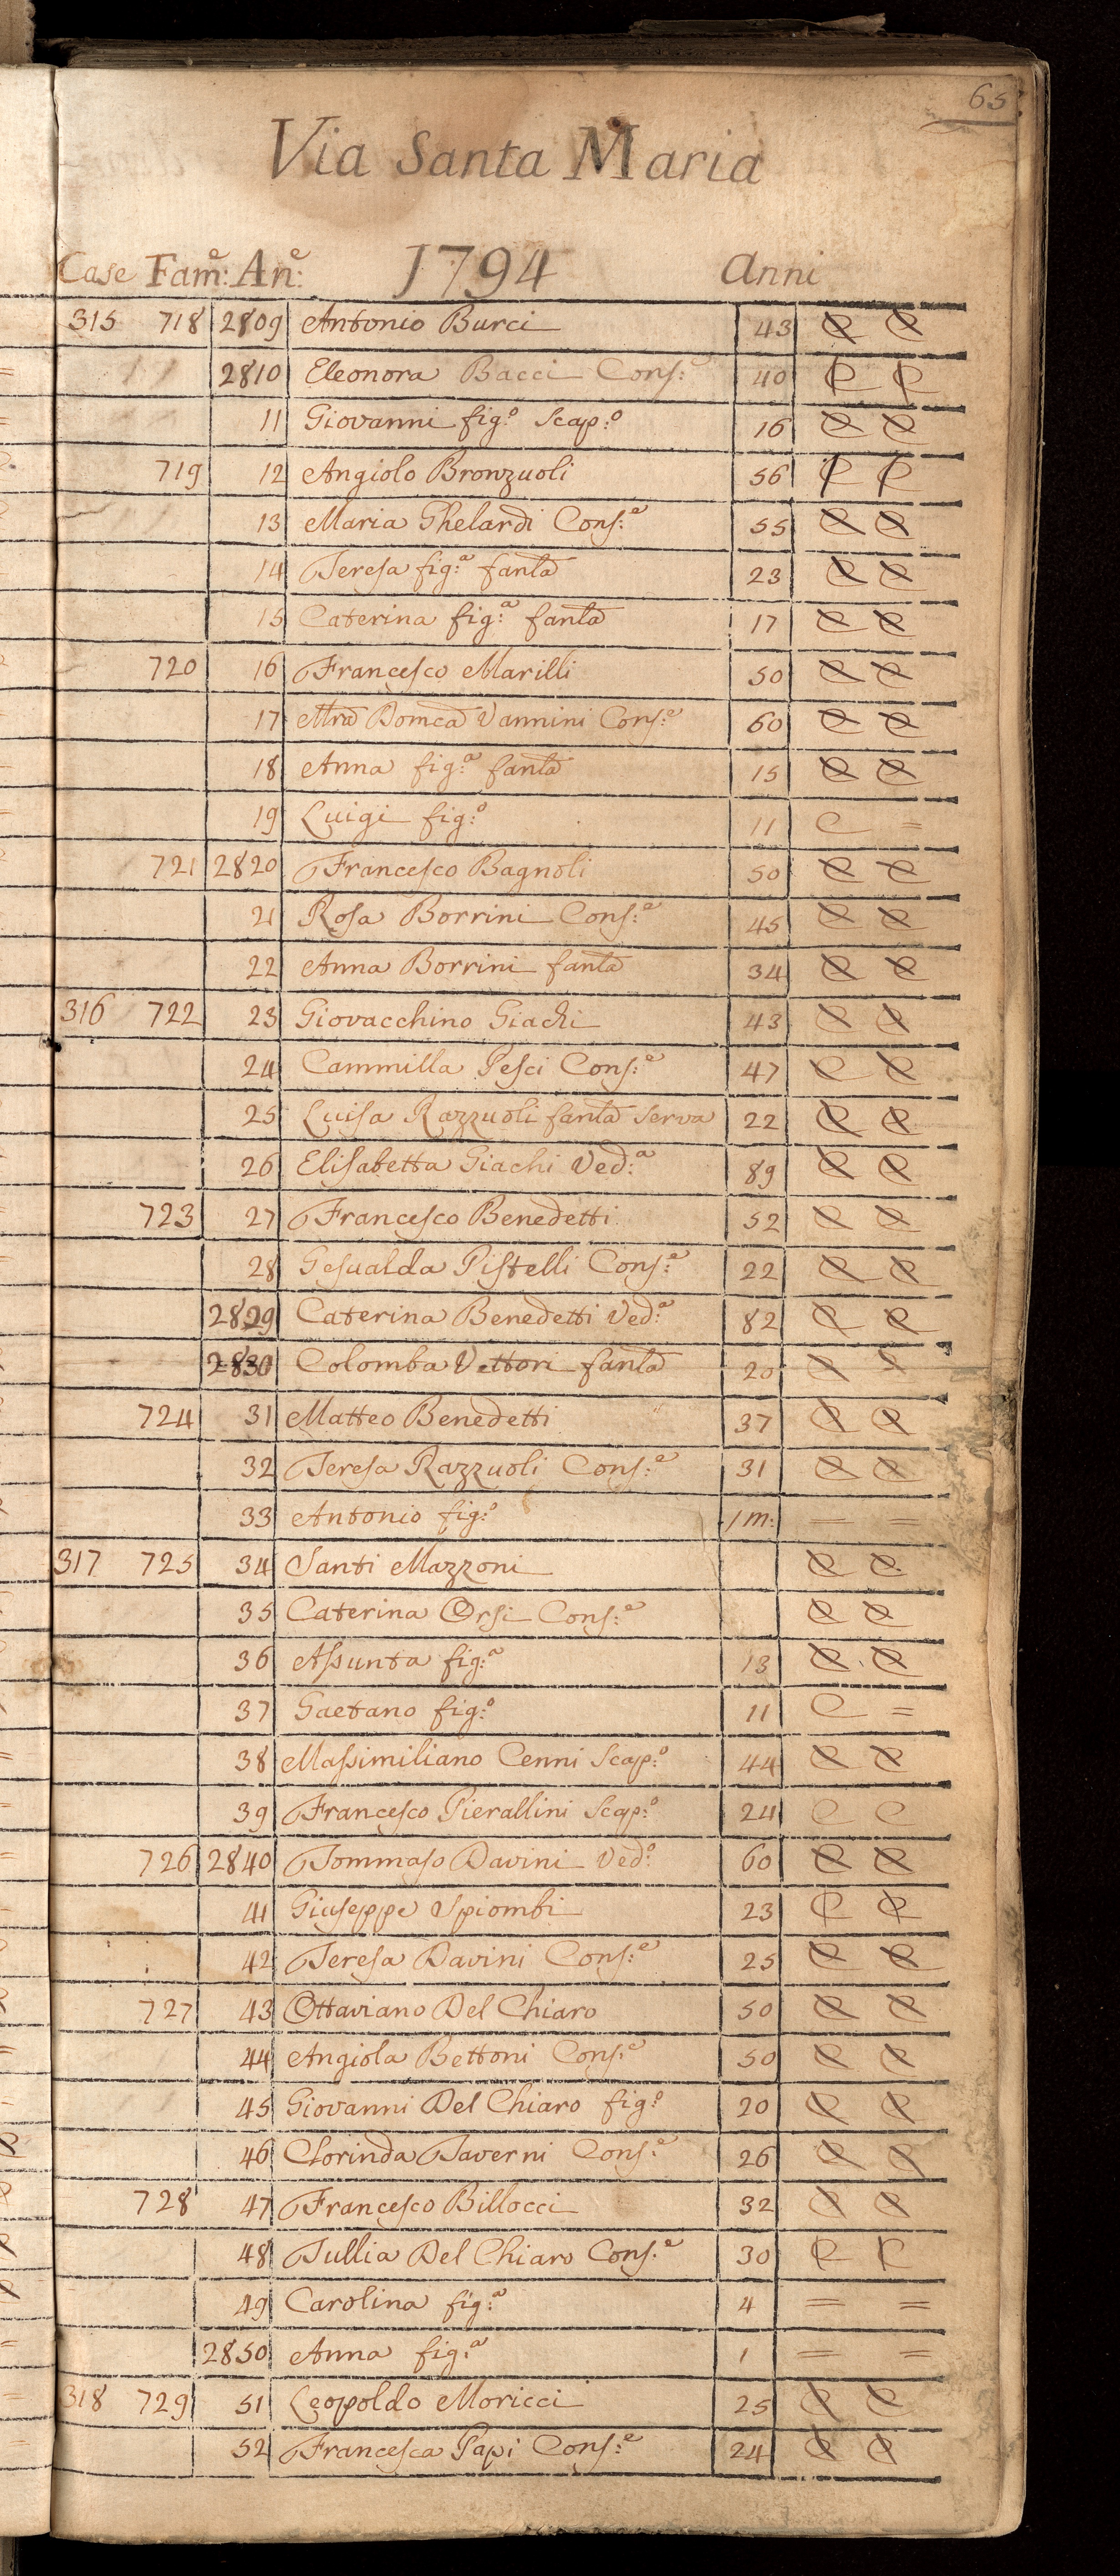 65
Via Santa Maria
Case Fam:e An:e 1794 Anni
315 718 2809 Antonio Burci 43 C C
2810 Eleonora Bacci Cons:e 40 C C
11 Giovanni fig:o Scap:o 16 C C
719 12 Angiolo Bronzuoli 56 C C
13 Maria Ghelardi Cons:e 55 C C
14 Teresa fig:a fanla 23 C C
15 Caterina fig:a fanla 17 C C
720 16 Francesco Marilli 50 C C
17 Mra Domca Vannini Cons:e 60 C C
18 Anna fig:a fanla 15 C C
19 Luigi fig:o 11 C =
721 2820 Francesco Bagnoli 50 C C
21 Rosa Borrini Cons:e 45 C C
22 Anna Borrini fanla 34 C C
316 722 23 Giovacchino Giachi 43 C C
24 Cammilla Pesci Cons:e 47 C C
25 Luisa Razzuoli fanla Serva 22 C C
26 Elisabetta Giachi Ved:a 89 C C
723 27 Francesco Benedetti 52 C C
28 Gesualda Pistelli Cons:e 22 C C
2829 Caterina Benedetti Ved:a 82 C C
2830 Colomba Vettori fanla 20 C C
724 31 Matteo Benedetti 37 C C
32 Teresa Razzuoli Cons:e 31 C C
33 Antonio fig:o 1 m: = =
317 725 34 Santi Mazzoni C C
35 Caterina Orsi Cons:e C C
36 Assunta fig:a 13 C C
37 Gaetano fig:o 11 C =
38 Massimiliano Cenni Scap:o 44 C C
39 Francesco Pierallini Scap:o 24 C C
726 2840 Tommaso Davini Ved:o 60 C C
41 Giuseppe Spiombi 23 C C
42 Teresa Davini Cons:e 25 C C
727 43 Ottaviano Del Chiaro 50 C C
44 Angiola Bettoni Cons:e 50 C C
45 Giovanni Del Chiaro fig:o 20 C C
46 Clorinda Taverni Cons:e 26 C C
728 47 Francesco Billocci 32 C C
48 Tullia Del Chiaro Cons:e 30 C C
49 Carolina fig:a 4 = =
2850 Anna fig:a 1 = =
318 729 51 Leopoldo Moricci 25 C C
52 Francesca Papi Cons:e 24 C C